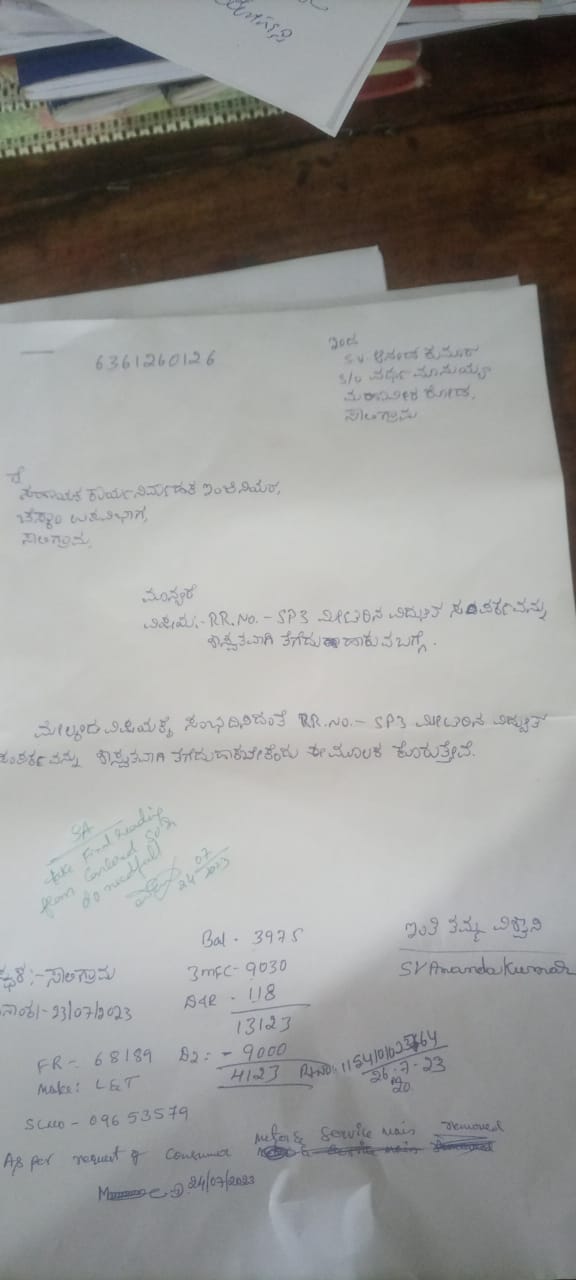 6361260126
ಇಂದ
S.V. ಆನಂದ ಕುಮಾರ
S/O ವರ್ಧಮಾನಯ್ಯ
ಮಹಾವೀರ ರೋಡ,
ಸಾಲಿಗ್ರಾಮ
ಗೆ
ಸಹಾಯಕ ಕಾರ್ಯನಿರ್ವಾಹಕ ಇಂಜಿನಿಯರ,
ಚೆಸ್ಕಾಂ ಉಪವಿಭಾಗ,
ಸಾಲಿಗ್ರಾಮ.
ಮಾನ್ಯರೆ
ವಿಷಯ:- RR.No. - SP3 ಮೀಟರಿನ ವಿದ್ಯುತ್ ಸಂಪರ್ಕವನ್ನು
ಶಾಶ್ವತವಾಗಿ ತೆಗೆದು ಹಾಕುವ ಬಗ್ಗೆ.
ಮೇಲ್ಕಂಡ ವಿಷಯಕ್ಕೆ ಸಂಭದಿಸಿದಂತೆ RR.No. - SP3 ಮೀಟರಿನ ವಿದ್ಯುತ್
ಸಂಪರ್ಕವನ್ನು ಶಾಶ್ವತವಾಗಿ ತೆಗೆದುಹಾಕಬೇಕೆಂದು ಈ ಮೂಲಕ ಕೋರುತ್ತೇವೆ.
SA
take Final reading
from Concerned
do needful
24 07 2023
ಇಂತಿ ತಮ್ಮ ವಿಶ್ವಾಸಿ
SVAnandaKumar
ಸ್ಥಳ:- ಸಾಲಿಗ್ರಾಮ
ದಿನಾಂಕ:- 23/07/2023
Bal - 3975
3MFC - 9030
D&R - 118
13123
D2: - 9000
4123
26-7-23
FR - 68189
Make: L&T
SLNO - 09653579
As per request of Consumer meter & Service main removed
24/07/2023